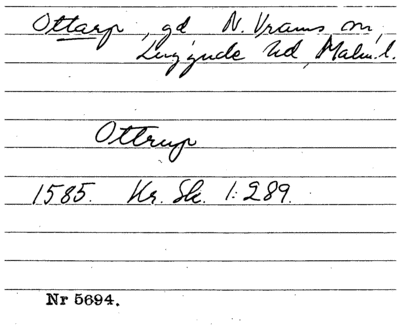 Ottarp, gd N. Vrams sn,
Luggude hd, Malm. l.
Ottrup
1585. Hr. Sk. 1:289.
Nr 5694.